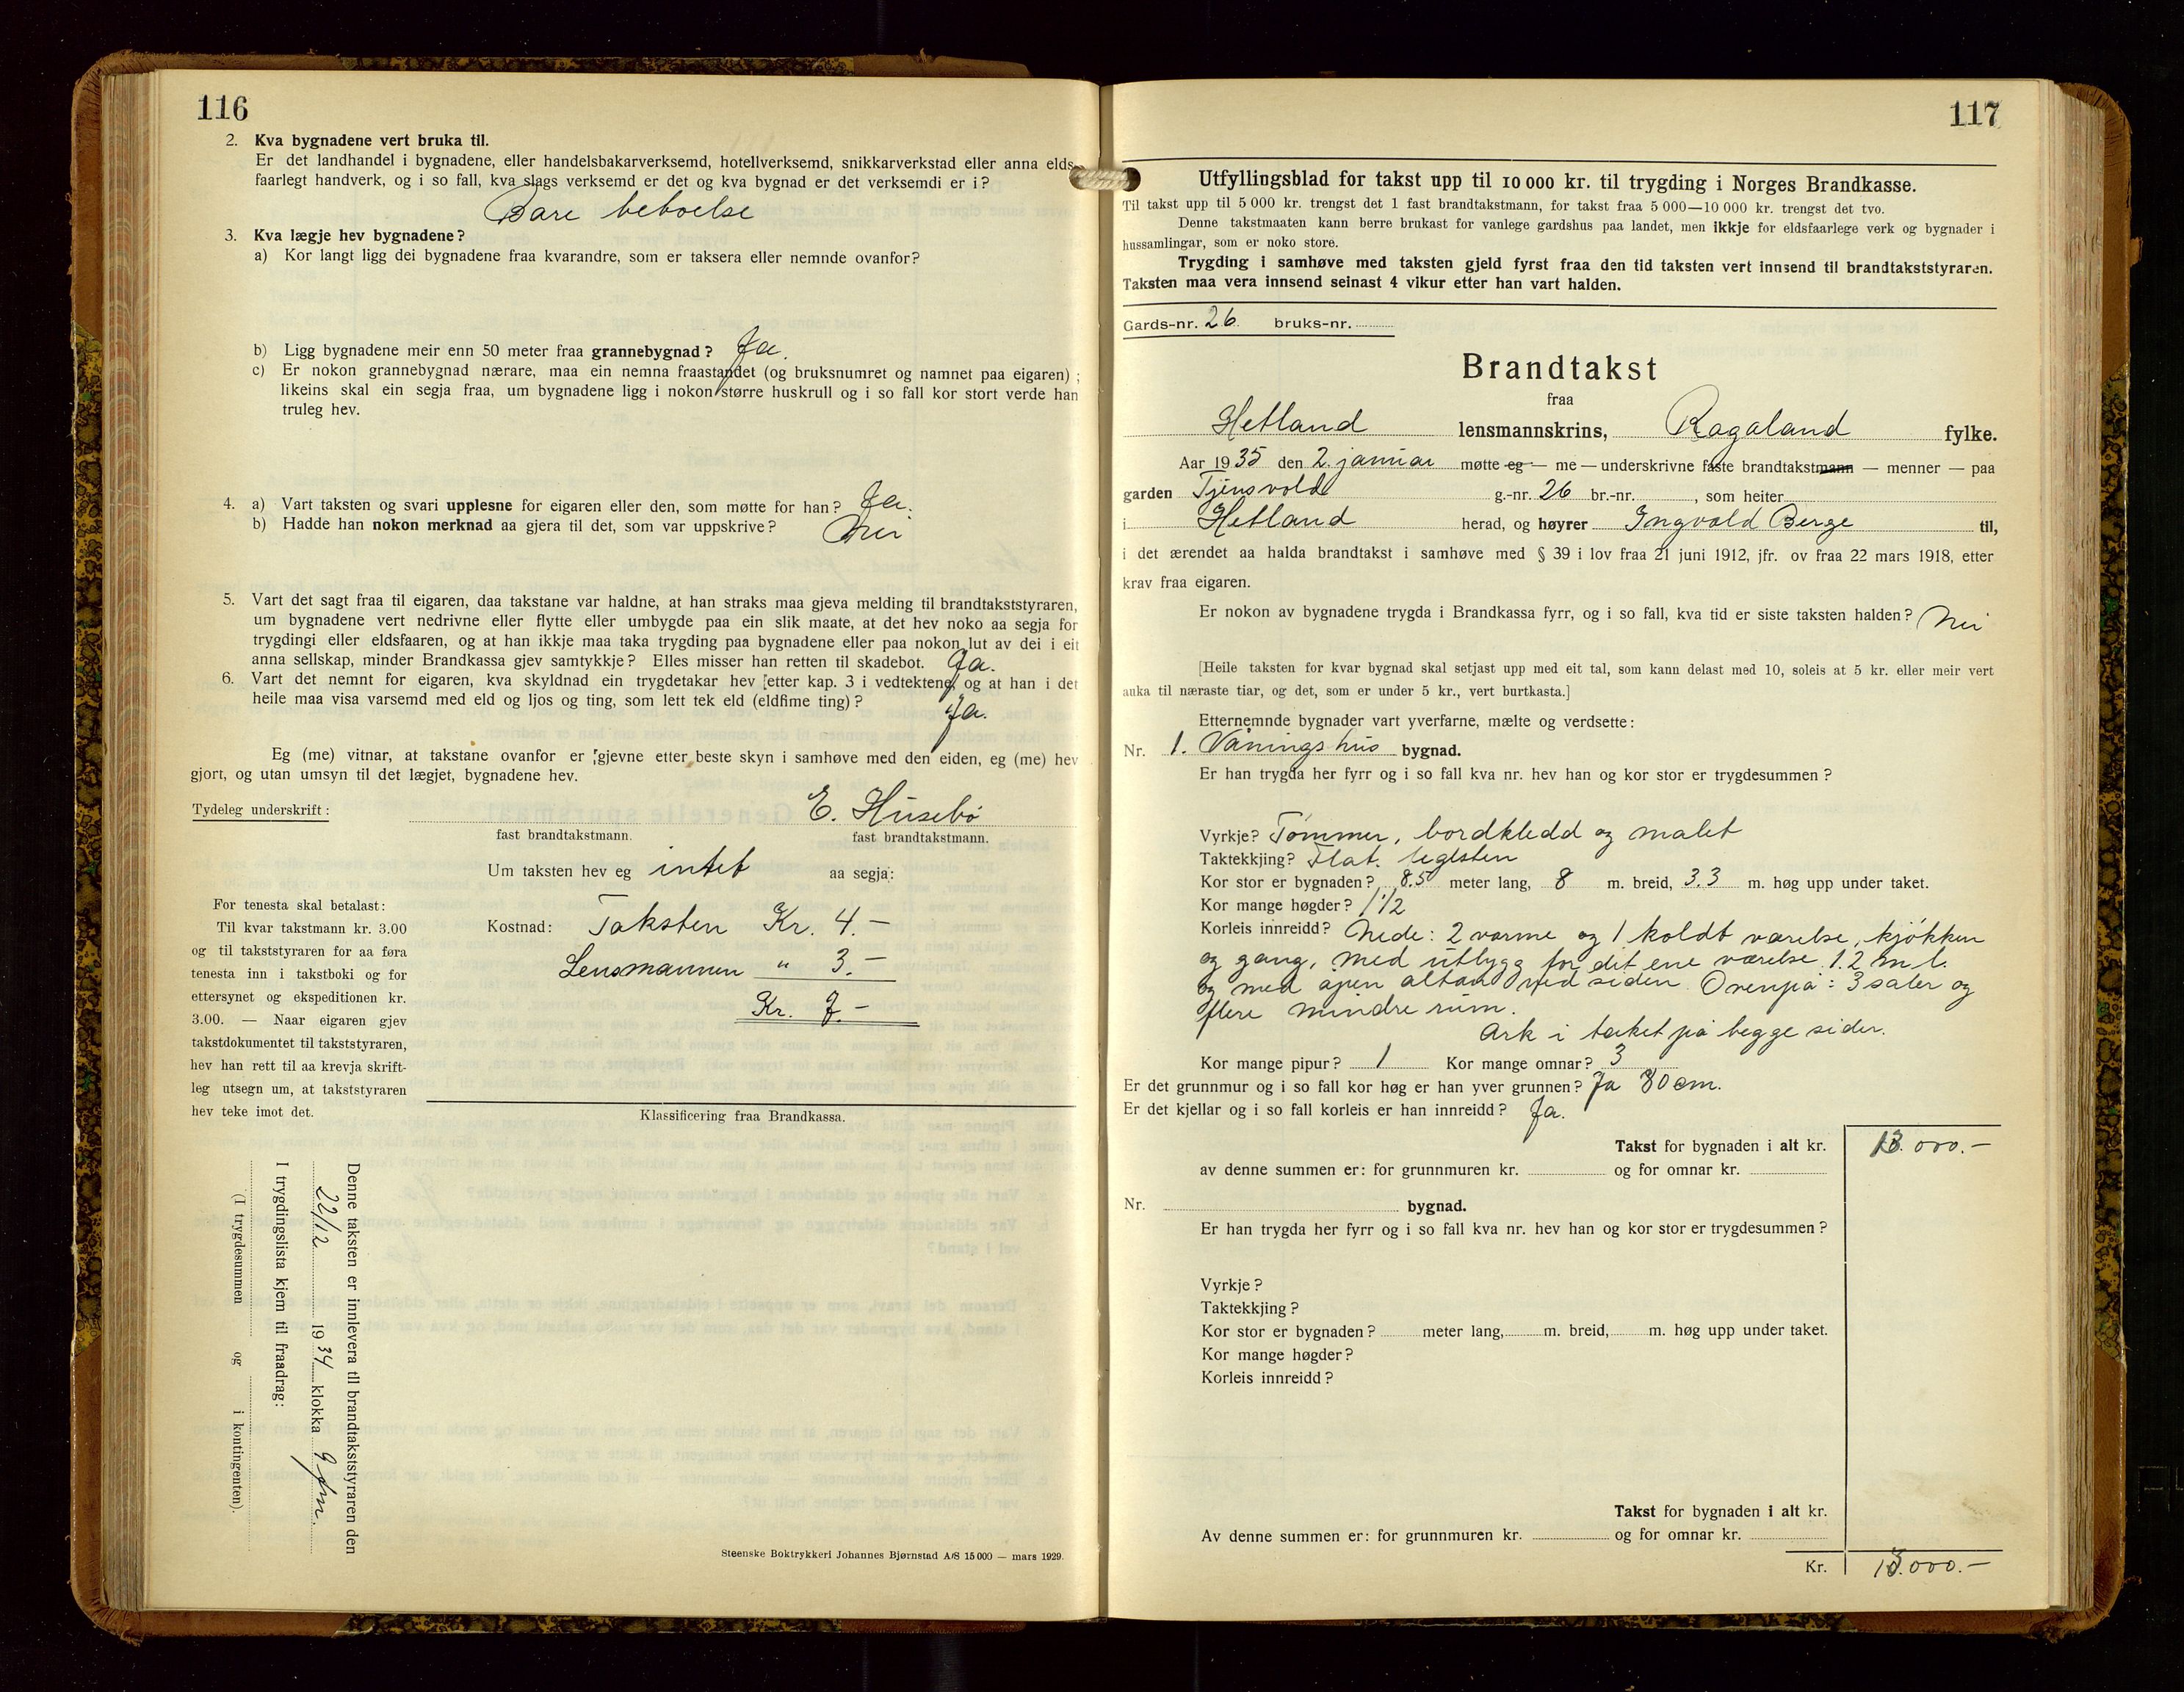 116
2. Kva bygnadene vert bruka til.
Er det landhandel i bygnadene, eller handelsbakarverksemd, hotellverksemd, snikkarverkstad eller anna elds-
faarlegt handverk, og i so fall, kva slags verksemd er det og kva bygnad er det verksemdi er i?
Bare beboelse
3. Kva lægje hev bygnadene?
a) Kor langt ligg dei bygnadene fraa kvarandre, som er taksera eller nemnde ovanfor?
b) Ligg bygnadene meir enn 50 meter fraa grannebygnad? Ja.
c) Er nokon grannebygnad nærare, maa ein nemna fraastandet (og bruksnumret og namnet paa eigaren);
likeins skal ein segja fraa, um bygnadene ligg i nokon større huskrull og i so fall kor stort verde han
truleg hev.
4. a) Vart taksten og svari upplesne for eigaren eller den, som møtte for han? Ja.
b) Hadde han nokon merknad aa gjera til det, som var uppskrive? Nei
5. Vart det sagt fraa til eigaren, daa takstane var haldne, at han straks maa gjeva melding til brandtakststyraren,
um bygnadene vert nedrivne eller flytte eller umbygde paa ein slik maate, at det hev noko aa segja for
trygdingi eller eldsfaaren, og at han ikkje maa taka trygding paa bygnadene eller paa nokon lut av dei i eit
anna sellskap, minder Brandkassa gjev samtykkje? Elles misser han retten til skadebot. Ja.
6. Vart det nemnt for eigaren, kva skyldnad ein trygdetakar hev [etter kap. 3 i vedtektene] og at han i det
heile maa visa varsemd med eld og ljos og ting, som lett tek eld (eldfime ting)? Ja.
Eg (me) vitnar, at takstane ovanfor er gjevne etter beste skyn i samhøve med den eiden, eg (me) hev
gjort, og utan umsyn til det lægjet, bygnadene hev.
Tydeleg underskrift: E. Husebø
fast brandtakstmann. fast brandtakstmann.
Um taksten hev eg intet aa segja:
For tenesta skal betalast:
Til kvar takstmann kr. 3.00
og til takststyraren for aa føra
tenesta inn i takstboki og for
ettersynet og ekspeditionen kr.
3.00. — Naar eigaren gjev
takstdokumentet til takststyraren,
hev han rett til aa krevja skrift-
leg utsegn um, at takststyraren
hev teke imot det.
Kostnad: Taksten Kr. 4.–
Lensmannen " 3.–
Kr. 7.–
Klassificering fraa Brandkassa.
Denne taksten er innlevera til brandtakststyraren den
22/12 1934 klokka 9 fm.
I trygdingslista kjem til fraadrag:
(I trygdesummen og i kontingenten).
Steenske Boktrykkeri Johannes Bjørnstad A/S 15 000 — mars 1929.
117
Utfyllingsblad for takst upp til 10 000 kr. til trygding i Norges Brandkasse.
Til takst upp til 5 000 kr. trengst det 1 fast brandtakstmann, for takst fraa 5 000—10 000 kr. trengst det tvo.
Denne takstmaaten kann berre brukast for vanlege gardshus paa landet, men ikkje for eldsfaarlege verk og bygnader i
hussamlingar, som er noko store.
Trygding i samhøve med taksten gjeld fyrst fraa den tid taksten vert innsend til brandtakststyraren.
Taksten maa vera innsend seinast 4 vikur etter han vart halden.
Gards-nr. 26. bruks-nr.
Brandtakst
fraa
Hetland lensmannskrins, Rogaland fylke.
Aar 1935 den 2. januar møtte eg — me — underskrivne faste brandtakstmann — menner — paa
garden Tjensvold g.-nr. 26 br.-nr. , som heiter
i Hetland herad, og høyrer Ingvald Berge til,
i det ærendet aa halda brandtakst i samhøve med § 39 i lov fraa 21 juni 1912, jfr. ov fraa 22 mars 1918, etter
krav fraa eigaren.
Er nokon av bygnadene trygda i Brandkassa fyrr, og i so fall, kva tid er siste taksten halden? Nei
[Heile taksten for kvar bygnad skal setjast upp med eit tal, som kann delast med 10, soleis at 5 kr. eller meir vert
auka til næraste tiar, og det, som er under 5 kr., vert burtkasta.]
Etternemnde bygnader vart yverfarne, mælte og verdsette:
Nr. 1. Våningshus bygnad.
Er han trygda her fyrr og i so fall kva nr. hev han og kor stor er trygdesummen?
Vyrkje? Tømmer, bordkledd og malet
Taktekkjing? Flat. teglsten
Kor stor er bygnaden? 8.50 meter lang, 8 m. breid, 3.3 m. høg upp under taket.
Kor mange høgder? 1 1/2
Korleis innreidd? Nede: 2 varme og 1 koldt værelse, kjøkken
og gang, med utbygg for det ene værelse 1.2 m l.
og med åpen altan ved siden. Ovenpå: 3 saler og
flere mindre rum.
Ark i taket på begge sider.
Kor mange pipur? 1 Kor mange omnar? 3
Er det grunnmur og i so fall kor høg er han yver grunnen? Ja 80 cm.
Er det kjellar og i so fall korleis er han innreidd? Ja.
Takst for bygnaden i alt kr. 13.000.–
av denne summen er: for grunnmuren kr. og for omnar kr.
Nr. bygnad.
Er han trygda her fyrr og i so fall kva nr. hev han og kor stor er trygdesummen?
Vyrkje?
Taktekkjing?
Kor stor er bygnaden? meter lang, m. breid, m. høg upp under taket.
Kor mange høgder?
Korleis innreidd?
Takst for bygnaden i alt kr.
Av denne summen er: for grunnmuren kr. og for omnar kr.
Kr. 13.000.–